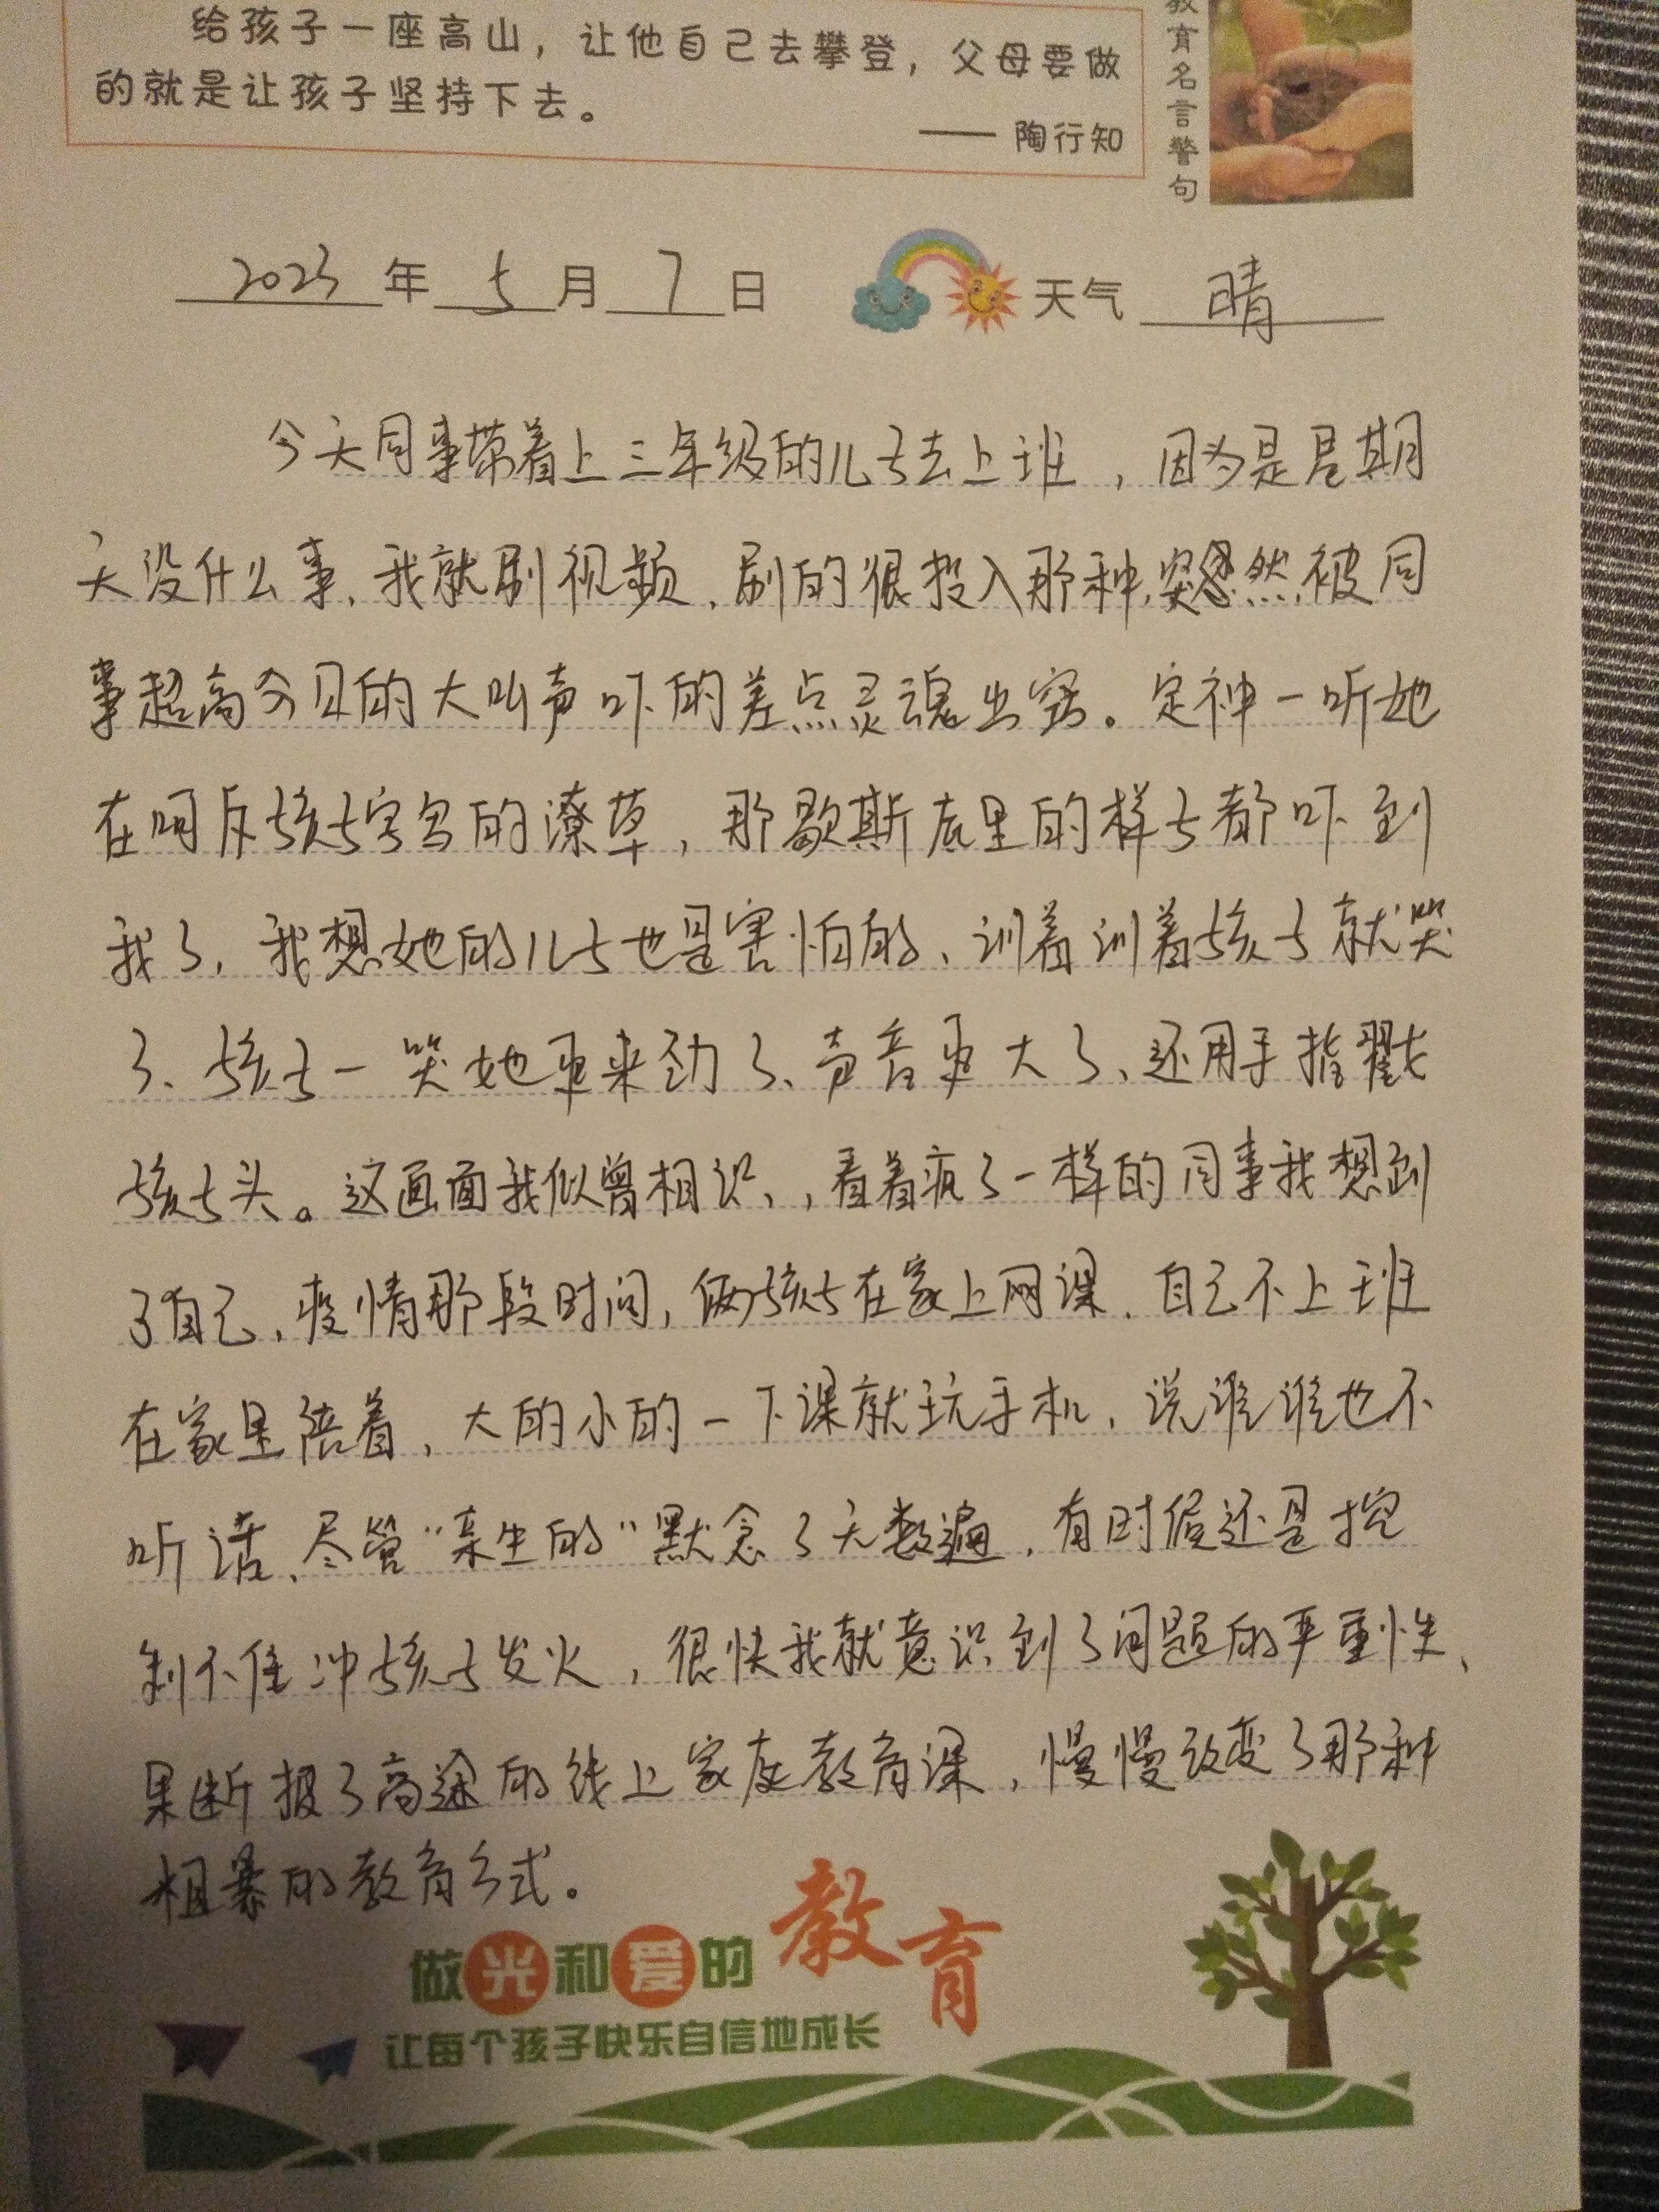 给孩子一座高山，让他自己去攀登，父母要做
的就是让孩子坚持下去。
——陶行知
教育名言警句
2023年5月7日 天气 晴
今天同事带着上三年级的儿子去上班，因为是星期
天没什么事、我就刷视频、刷的很投入那种,突然,被同
事超高分贝的大叫声吓的差点灵魂出窍。定神一听她
在呵斥孩子字写的潦草，那歇斯底里的样子都吓到
我了，我想她的儿子也是害怕的、训着训着孩子就哭
了、孩子一哭她更来劲了、声音更大了、还用手指戳
孩子头。这画面我似曾相识、，看着疯了一样的同事我想到
了自己、疫情那段时间，俩孩子在家上网课、自己不上班
在家里陪着，大的小的一下课就玩手机、说谁谁也不
听话、尽管“亲生的”默念了无数遍，有时侯还是控
制不住冲孩子发火，很快我就意识到了问题的严重性、
果断报了高途的线上家庭教育课，慢慢改变了那种
粗暴的教育方式。
做光和爱的教育
让每个孩子快乐自信地成长